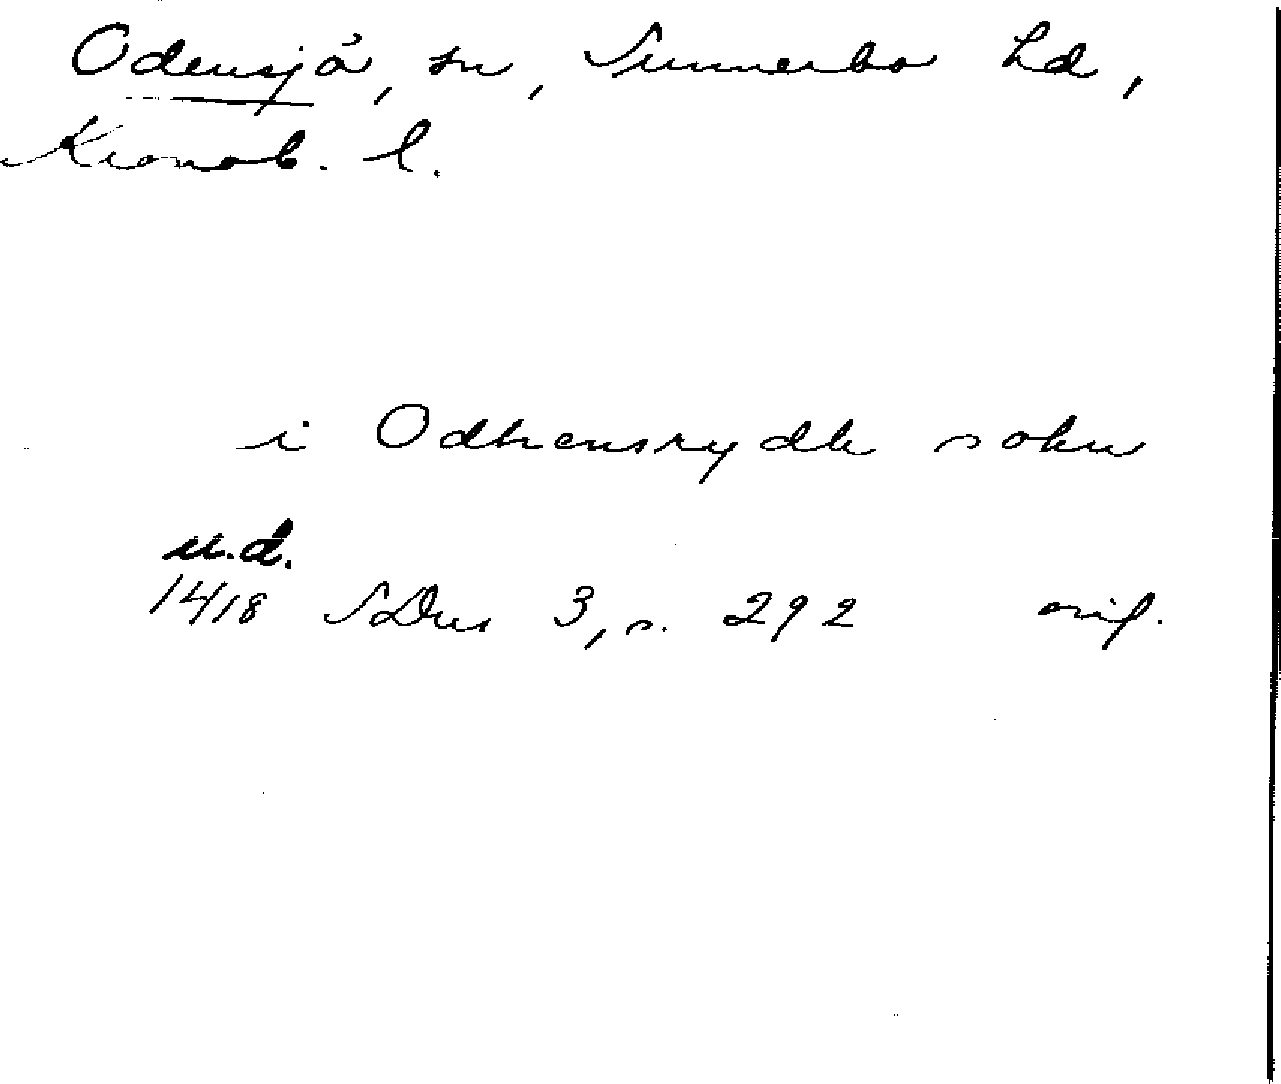 Odensjö, sn, Sunnerbo hd,
Kronob. l.
i Odhensrydh sokn
u.d.
1418 SDns 3, s. 292 orig.